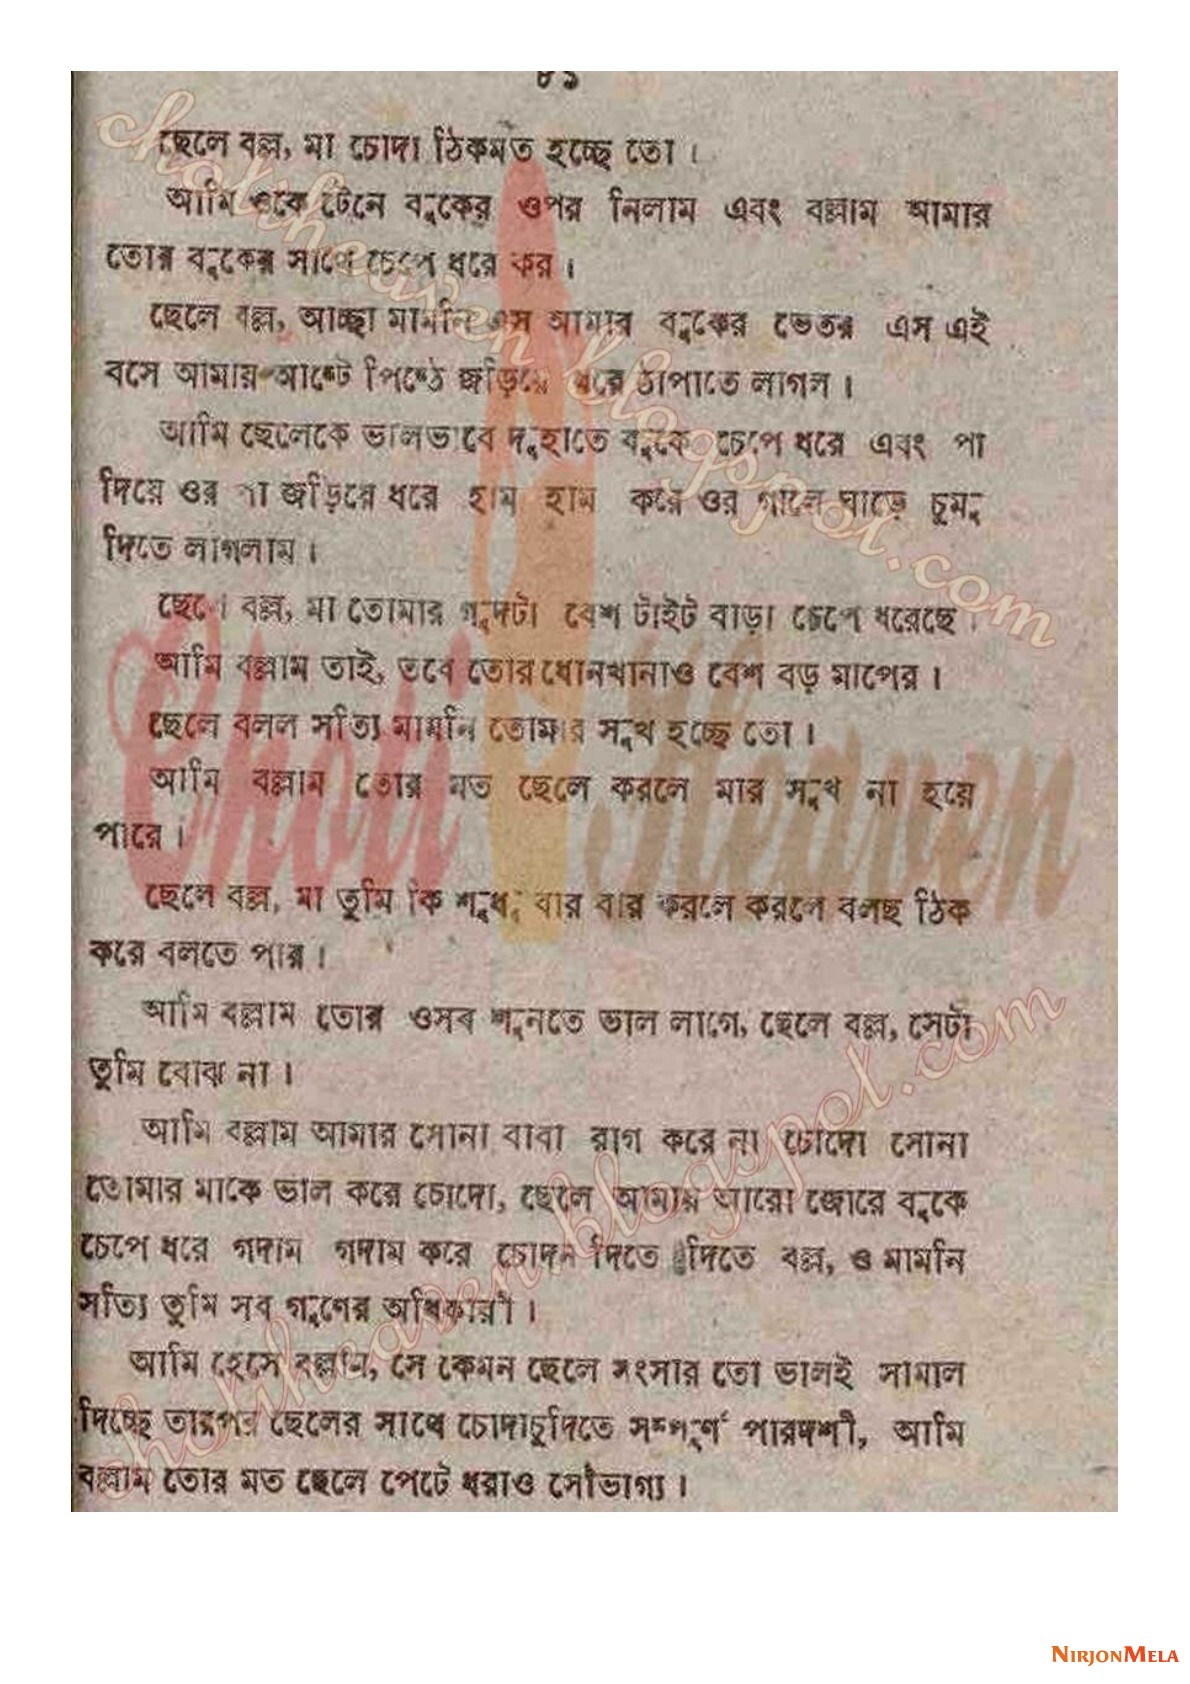 ৮১
ছেলে বল্ল, মা চোদা ঠিকমত হচ্ছে তো।
আমি ওকে টেনে বুকের ওপর নিলাম এবং বল্লাম আমার
তোর বুকের সাথে চেপে ধরে কর।
ছেলে বল্ল, আচ্ছা মামনি এস আমার বুকের ভেতর এস এই
বসে আমায় আষ্টে পিষ্ঠে জড়িয়ে ধরে ঠাপাতে লাগল।
আমি ছেলেকে ভালভাবে দুহাতে বুকে চেপে ধরে এবং পা
দিয়ে ওর পা জড়িয়ে ধরে হাম হাম করে ওর গালে ঘাড়ে চুমু
দিতে লাগলাম।
ছেলে বল্ল, মা তোমার গুদটা বেশ টাইট বাড়া চেপে ধরেছে।
আমি বল্লাম তাই, তবে তোর ধোনখানাও বেশ বড় মাপের।
ছেলে বলল সত্যি মামনি তোমার সুখ হচ্ছে তো।
আমি বল্লাম তোর মত ছেলে করলে মার সুখ না হয়ে
পারে।
ছেলে বল্ল, মা তুমি কি শুধু বার বার করলে করলে বলছ ঠিক
করে বলতে পার।
আমি বল্লাম তোর ওসব শুনতে ভাল লাগে, ছেলে বল্ল, সেটা
তুমি বোঝ না।
আমি বল্লাম আমার সোনা বাবা রাগ করে না চোদো সোনা
তোমার মাকে ভাল করে চোদো, ছেলে আমায় আরো জোরে বুকে
চেপে ধরে গদাম গদাম করে চোদন দিতে দিতে বল্ল, ও মামনি
সত্যি তুমি সব গুণের অধিকারী।
আমি হেসে বল্লাম, সে কেমন ছেলে সংসার তো ভালই সামাল
দিচ্ছে তারপর ছেলের সাথে চোদাচুদিতে সম্পূর্ণ পারদর্শী, আমি
বল্লাম তোর মত ছেলে পেটে ধরাও সৌভাগ্য।
chotiheaven.blogspot.com
Choti Heaven
chotiheaven.blogspot.com
NIRJONMELA